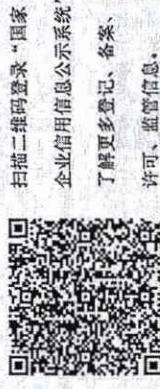 扫描二维码登录“国家
企业信用信息公示系统”
了解更多登记、备案、
许可、监管信息。